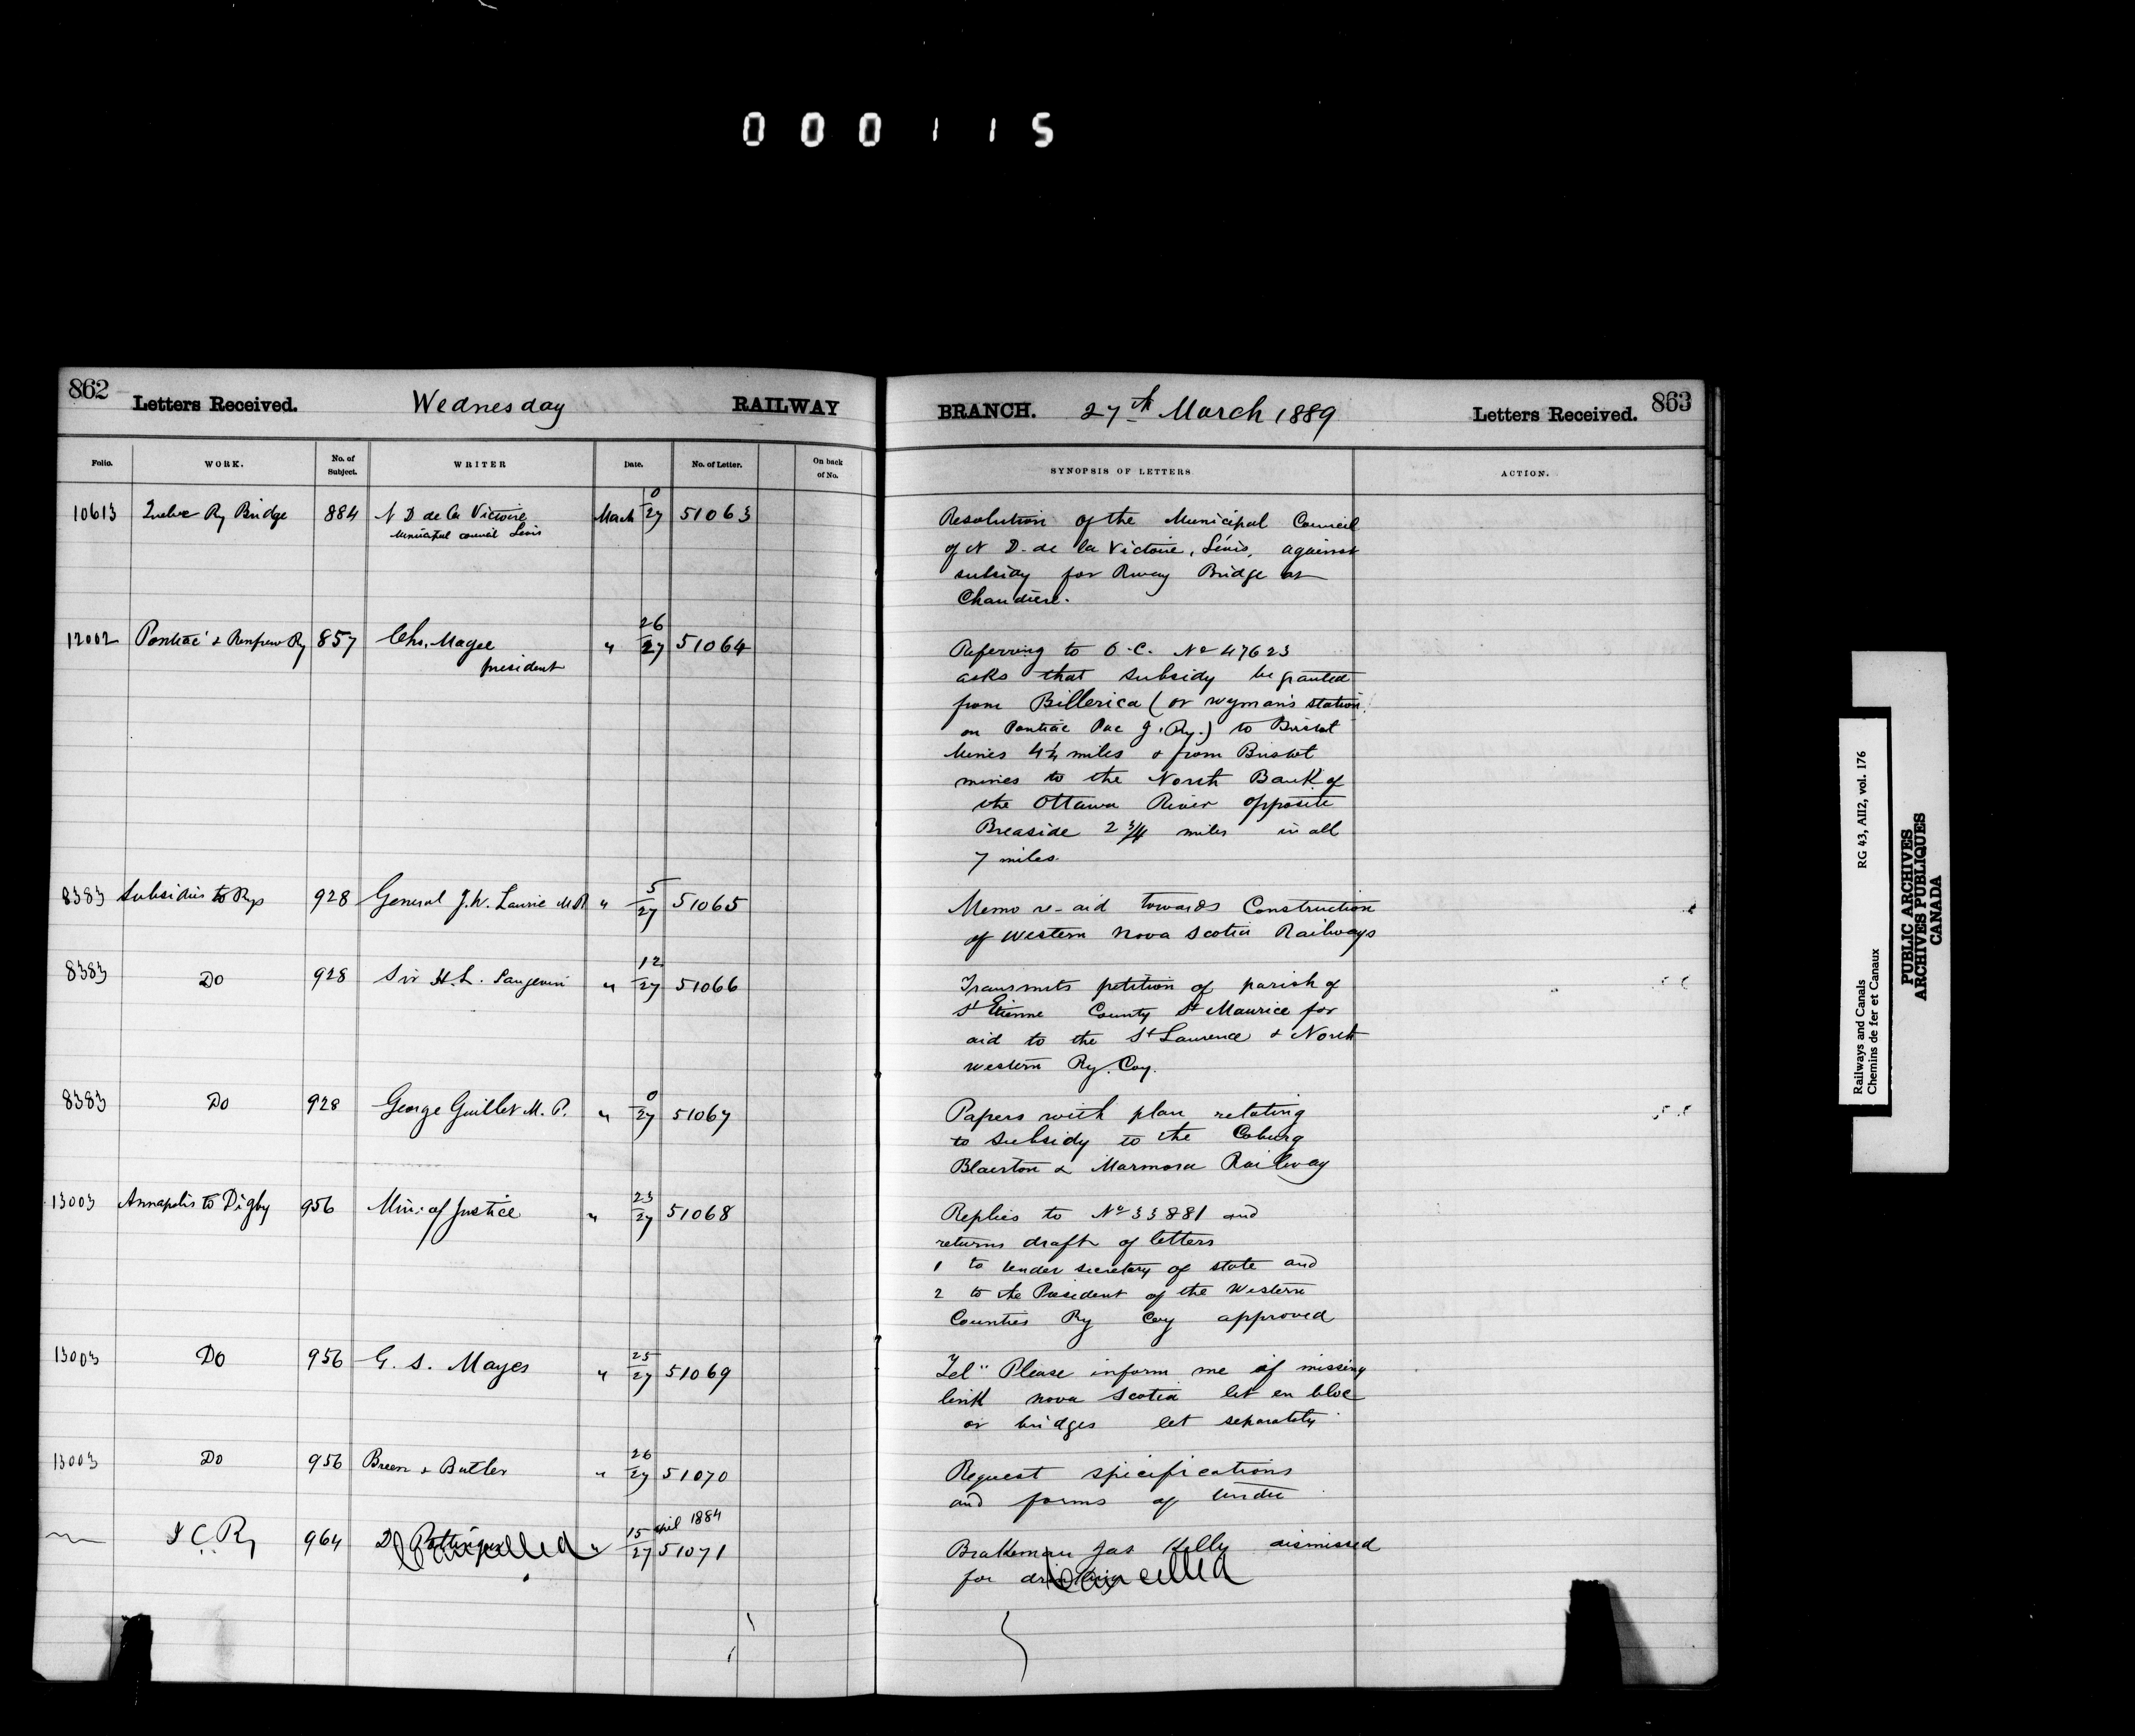 000115
862 Letters Received. Wednesday RAILWAY
BRANCH. 27th March 1889 Letters Received. 863
Folio. WORK. No. of Subject. WRITER Date. No. of Letter. On back of No.
SYNOPSIS OF LETTERS ACTION.
10613 Quebec Ry Bridge 884 N D de la Victoire March 0/27 51063
Municipal council Levis
Resolution of the Municipal Council
of N D. de la Victoire, Lévis, against
subsidy for Rway Bridge at
Chaudiere.
12002 Pontiac & Renfrew Ry 857 Chs. Magee " 26/27 51064
president
Referring to O.C. No 47623
asks that subsidy be granted
from Billerica (or Wyman's station
on Pontiac Pac J. Ry.) to Bristol
Mines 4¼ miles & from Bristol
mines to the North Bank of
the Ottawa River opposite
Breaside 2 3/4 miles in all
7 miles.
8383 Subsidies to Rys 928 General J.W. Laurie M.P. " 5/27 51065
Memo re-aid towards Construction
of Western Nova Scotia Railways
8383 Do 928 Sir H.L. Langevin " 12/27 51066
Transmits petition of parish of
St Etienne County St Maurice for
aid to the St Laurence & North
western Ry. Coy.
8383 Do 928 George Guillet M.P. " 0/27 51067
Papers with plan relating
to subsidy to the Coburg
Blairton & Marmora Railway
13003 Annapolis to Digby 956 Min: of Justice " 23/27 51068
Replies to No 33881 and
returns draft of letters
1 to Under secretary of state and
2 to the President of the Western
Counties Ry Coy approved
13003 Do 956 G. S. Mayes " 25/27 51069
Tel" Please inform me if missing
link Nova Scotia let en bloc
or bridges let separately
13003 Do 956 Breen & Butler " 26/27 51070
Request specifications
and forms of tender
I C Ry 964 D Pottinger " 15/27 April 1884 51071
Cancelled
Brakeman Jas Kelly dismissed
for drinking
Cancelled
Railways and Canals RG 43, AII2, vol. 176
Chemins de fer et Canaux
PUBLIC ARCHIVES
ARCHIVES PUBLIQUES
CANADA